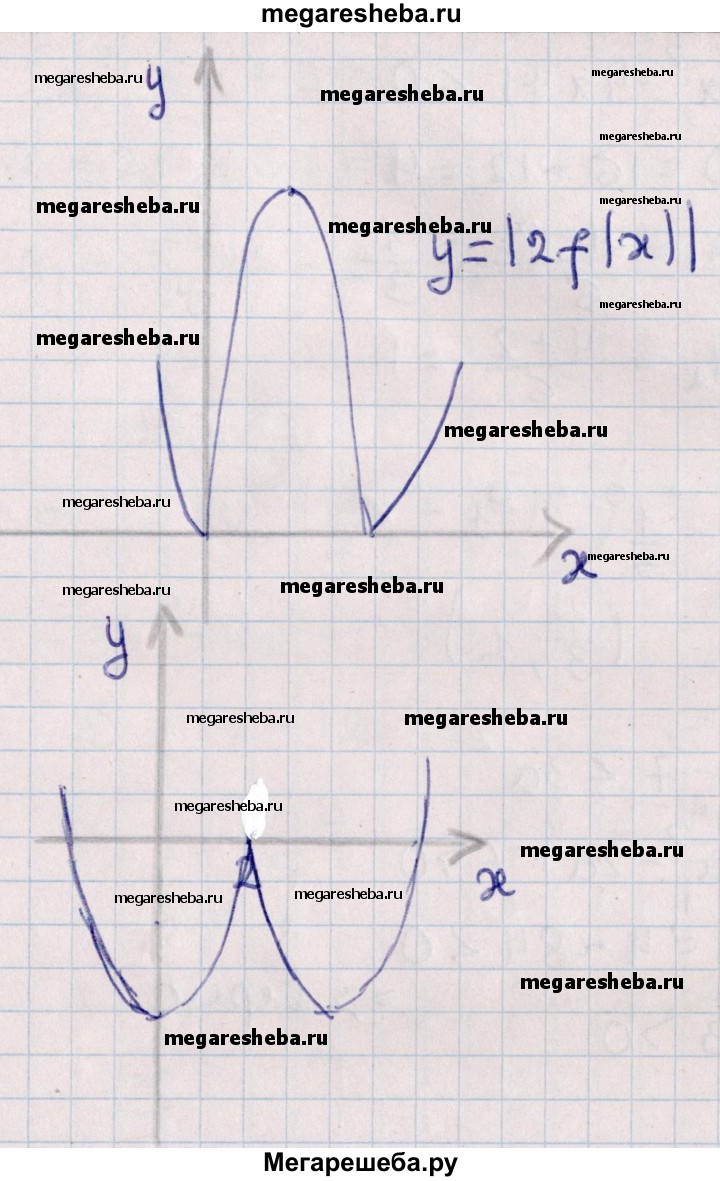 megaresheba.ru
megaresheba.ru
y
megaresheba.ru
megaresheba.ru
megaresheba.ru
megaresheba.ru
megaresheba.ru
megaresheba.ru
y = |2f|x||
megaresheba.ru
megaresheba.ru
megaresheba.ru
megaresheba.ru
x
megaresheba.ru
megaresheba.ru
megaresheba.ru
y
megaresheba.ru
megaresheba.ru
megaresheba.ru
megaresheba.ru
megaresheba.ru
megaresheba.ru
x
megaresheba.ru
megaresheba.ru
Мегарешеба.ру